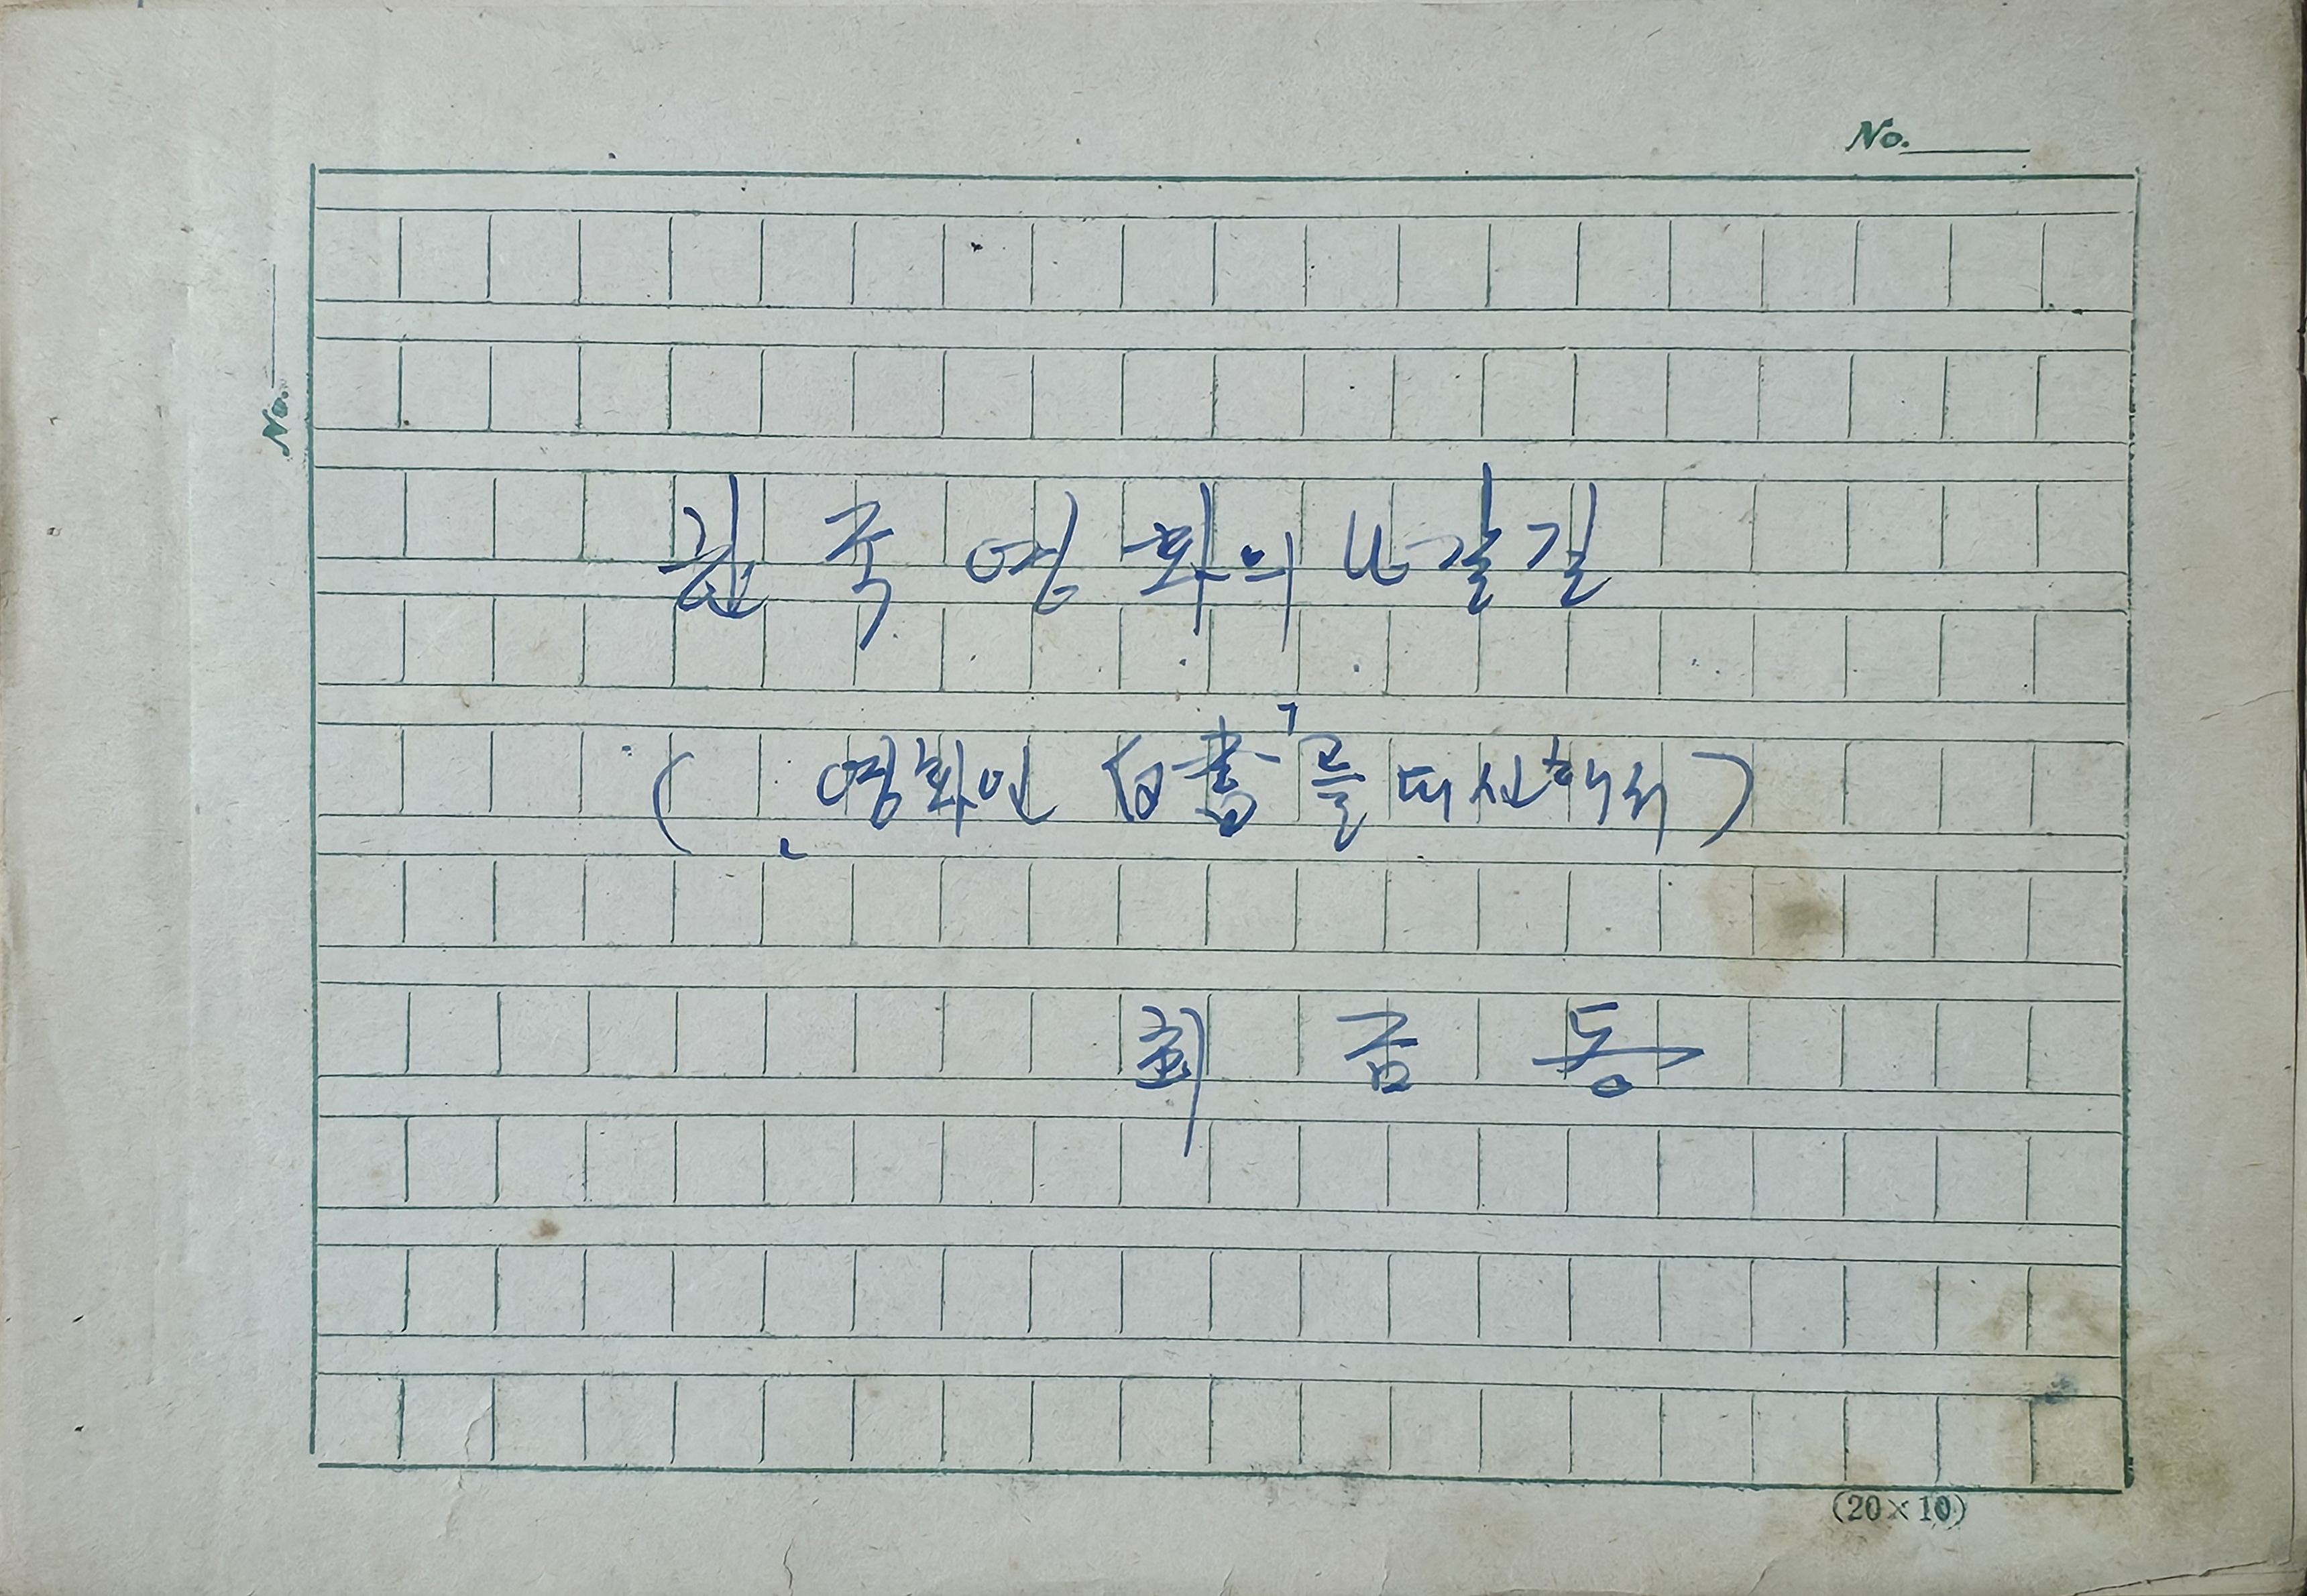 No.
No.
한국영화의 나갈길
(「영화인 白書」를 대신해서)
최금동
(20×10)